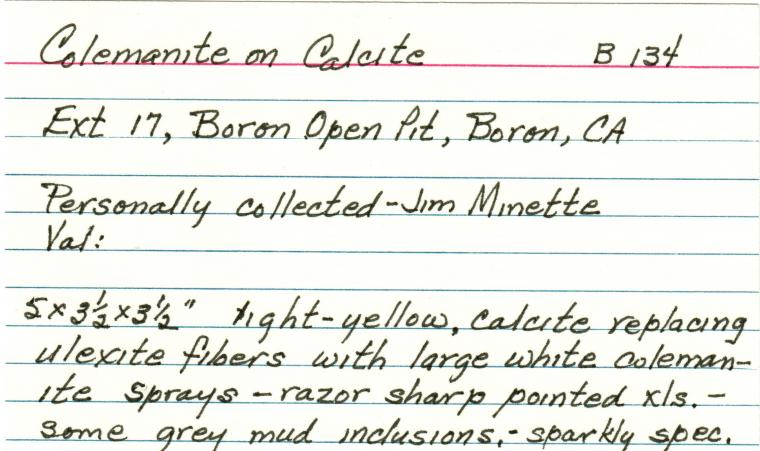 Colemanite on Calcite B 134
Ext 17, Boron Open Pit, Boron, CA
Personally collected - Jim Minette
Val:
5 x 3½ x 3½" light-yellow, calcite replacing
ulexite fibers with large white coleman-
ite sprays - razor sharp pointed xls. -
some grey mud inclusions, - sparkly spec.